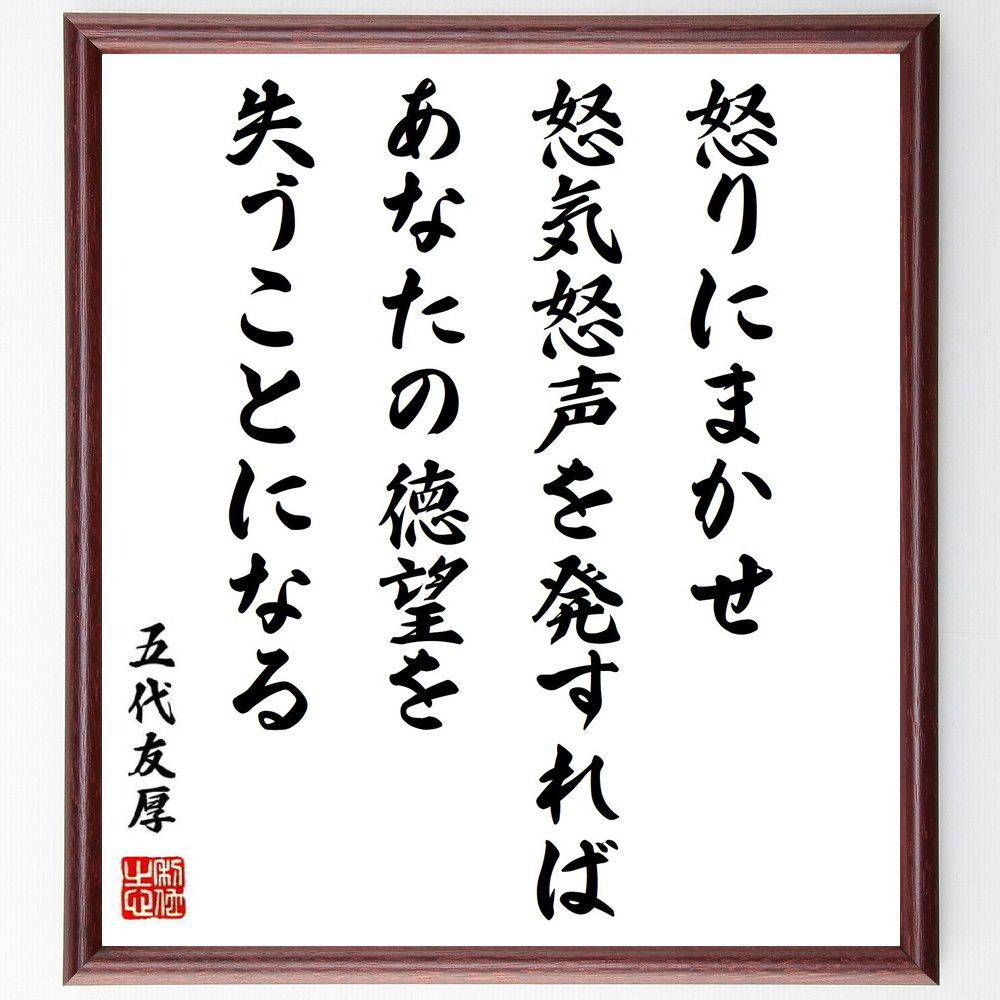 怒りにまかせ
怒気怒声を発すれば
あなたの徳望を
失うことになる
五代友厚